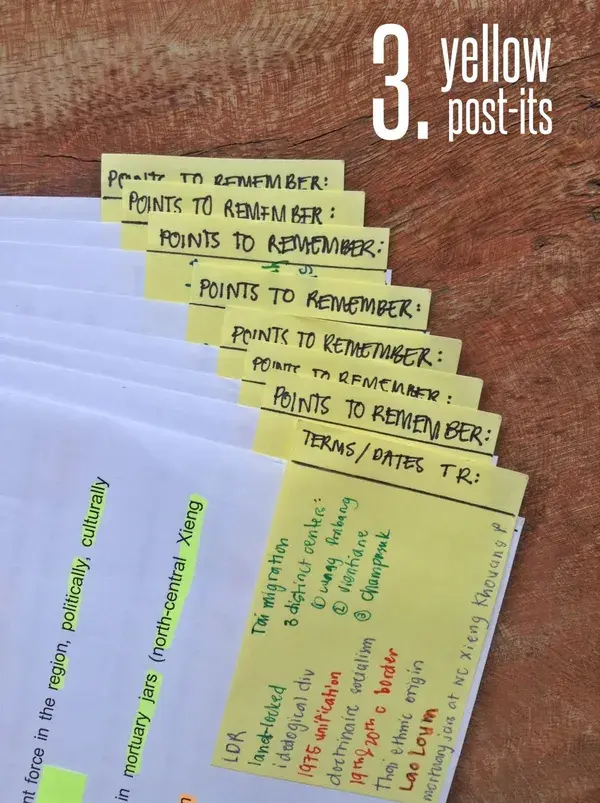 3. yellow
post-its
POINTS TO REMEMBER:
POINTS TO REMEMBER:
POINTS TO REMEMBER:
POINTS TO REMEMBER:
POINTS TO REMEMBER:
POINTS TO REMEMBER:
POINTS TO REMEMBER:
TERMS/DATES TR:
Tai migration
3 distinct centers:
① Luang Prabang
② Vientiane
③ Champasak
LDR
land-locked
ideological div
1975 unification
doctrinaire socialism
19th & 20th c border
thai ethnic origin
Lao Loum
mortuary jars at NC Xieng Khouang P
nt force in the region, politically, culturally
in mortuary jars (north-central Xieng